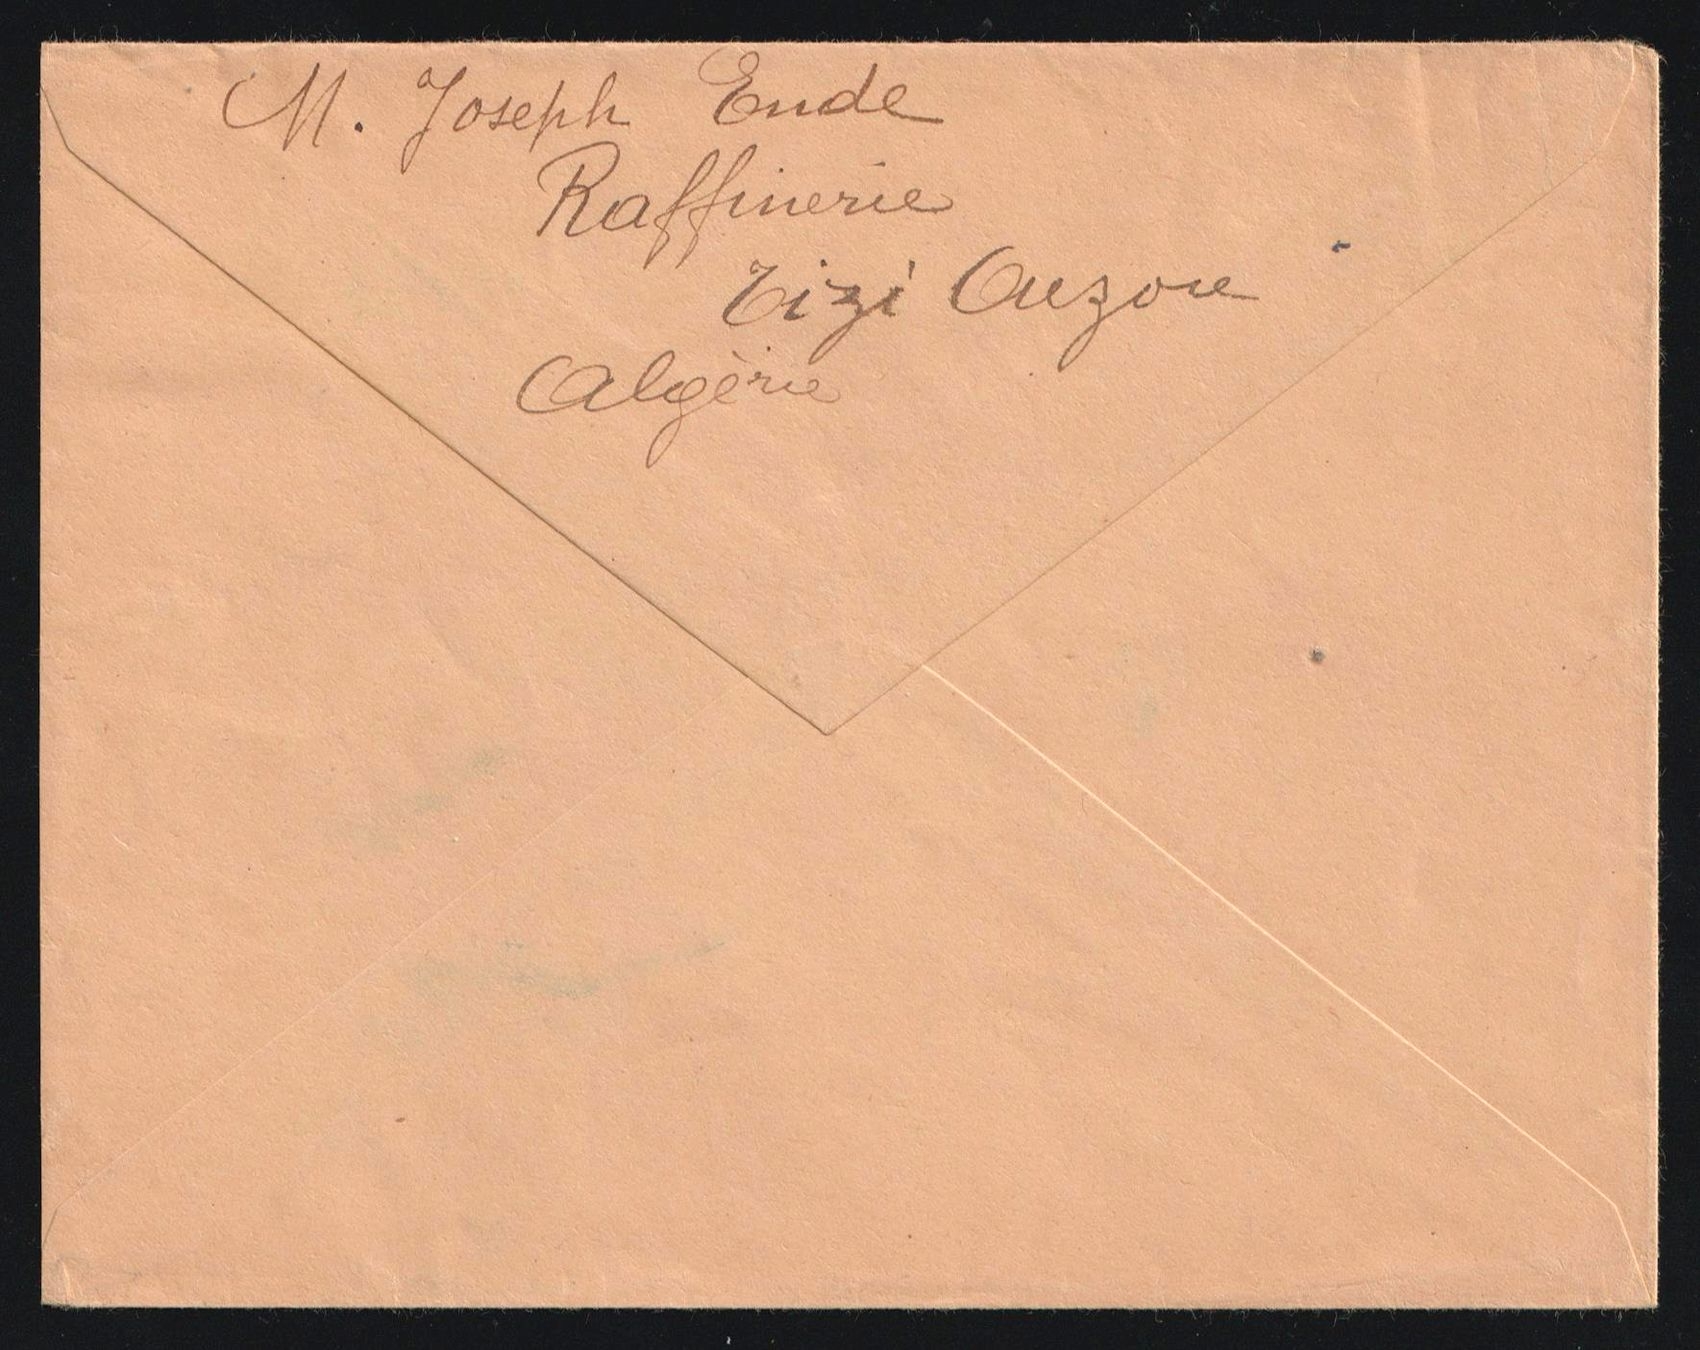 M. Joseph Ende
Raffinerie
Tizi Ouzou
Algérie